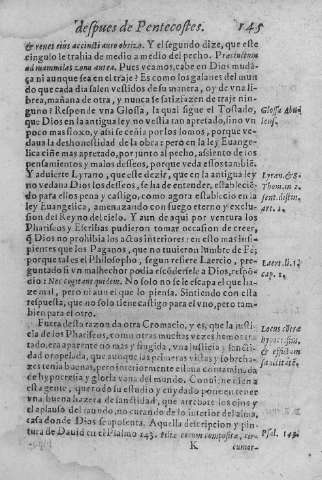 despues de Pentecostes. 145
& renes eius accincti auro obrizo. Y el segundo dize, que este
cingulo le trahia de medio a medio del pecho. Præcinctum
ad mammillas zona aurea. Pues veamos, cabe en Dios mudã-
ça ni aunque sea en el traje? Es como los galanes del mun
do que cada dia salen vestidos de su manera, oy de vna li
brea, mañana de otra, y nunca se satizfazen de traje nin-
guno? Responde vna Glossa, la qual sigue el Tostado,
que Dios en la antigua ley no vestia tan apretado, sino vn
poco mas floxo, y assi se ceñia por los lomos, porque ve-
daua la deshonestidad de la obra: pero en la ley Euange-
lica ciñe mas apretado, por junto al pecho, assiento de los
pensamientos y malos desseos, porque veda essos tambiẽ.
Y aduierte Lyrano, que este dezir, que en la antigua ley
no vedaua Dios los desseos, se ha de entender, estableciẽ-
do para ellos pena y castigo, como agora establecio en la
ley Euangelica, amenazando con fuego eterno y exclu-
sion del Reyno del cielo. Y aun de aqui por ventura los
Phariseos y Escribas pudieron tomar ocasion de creer,
q̃ Dios no prohibia los actos interiores: en esto mas insi-
pientes que los Paganos, que no tuuieron lumbre de Fè;
porque tales el Philosopho, segun refiere Laercio, pre-
guntado si vn malhechor podia escõderse le a Dios, respõ-
dio: Nec cogitans quidem. No solo no se le escapa el que ha-
ze mal, pero ni aun el que lo piensa. Sintiendo con esta
respuesta, que no solo tiene castigo para el vno, pero tam-
bien para el otro.
Glossa Abu
lens.
Lyran. & S.
Thom. in 2.
sent. distin.
art. 2.
Laert. li. 1.
cap. 2.
Fuera desta razon da otra Cromacio, y es, que la justi-
cia de los Phariseos, como otras muchas vezes hemos tra-
tado, era aparente no mas y fingida, vna justicia y sancti-
dad oropelada, que aunque las primeras vistas y sobreha-
zes tenia buenas, pero interiormente estaua contamina da
de hypocresia y gloria vana del mundo.
esta gente, que todo su estudio y cuydado ponen en tener
vna buena hazera de sanctidad, que arrebate los ojos y
el aplauso del mundo, no curando de lo interior del alma,
casa donde Dios se aposenta. Aquella descripcion y pin-
tura de Dauid en el Psalmo 143. filiæ eorum compositæ, cir-
K cumor-
Locus cõtra
hypocresim,
& fictam
sanctitatẽ.
Psal. 143.